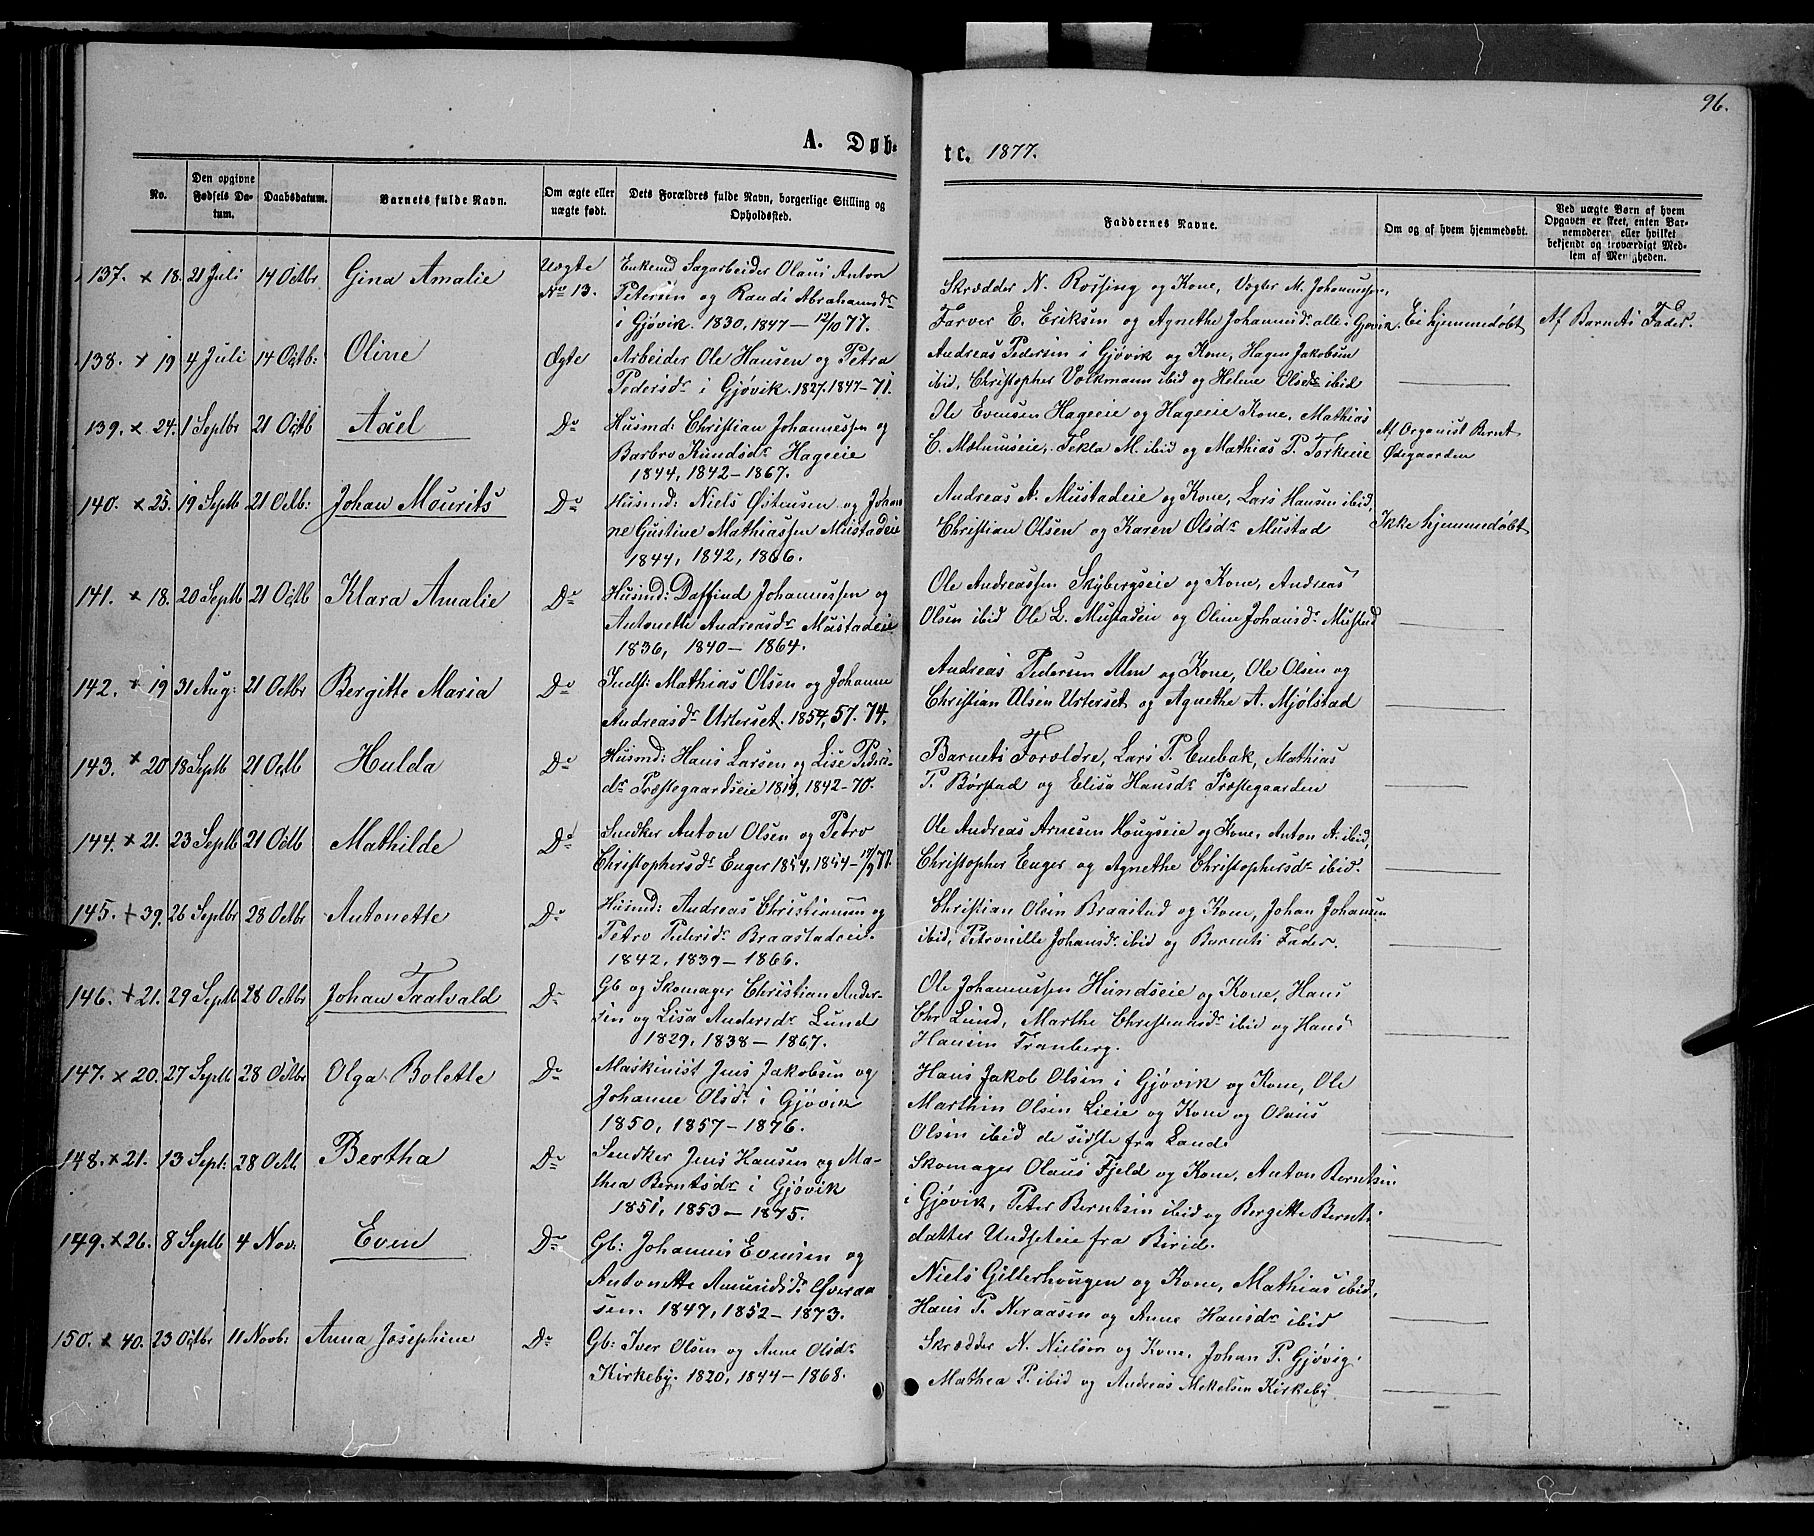 96.
A. Døb-
te. 1877.
No.
Den opgivne Fødsels Da-tum.
Daabsdatum.
Barnets fulde Navn.
Om ægte eller uægte født.
Dets Forældres fulde Navn, borgerlige Stilling og Opholdssted.
Faddernes Navne.
Om og af hvem hjemmedøbt.
Ved uægte Børn af hvem Opgaven er skeet, enten Bar-nemoderen eller hvilket bekjendt og troværdigt Med-lem af Menigheden.
137. x 18. 21 Juli 14 Octbr Gina Amalie Uægte No 13.
Enkemd Sagarbeider Olaus Anton
Petersen og Randi Abrahamsdr
i Gjøvik. 1830, 1847 – 12/10 77.
Skrædder N. Rossing og Kone, Vogter M. Johannessen,
Farver E. Eriksen og Agnethe Johannesdr alle i Gjøvik. Ei hjemmedøbt Af Barnets Fader.
138. x 19 4 Juli 14 Octb: Oline Ægte
Arbeider Ole Hansen og Petra
Pedersdr i Gjøvik. 1827. 1847 – 71.
Andreas Pedersen i Gjøvik og Kone, Hagen Jakobsen
ibid, Christopher Volkmann ibid og Helene Olsdr ibid
139. x 24. 1 Septbr 21 Octb Axel Do
Husmd: Christian Johannessen og
Barbro Knudsdr Hageeie
1844, 1842 – 1867.
Ole Evensen Hageeie og Hageeie Kone, Mathias
E. Mælumseie, Tekla M. ibid og Mathias P. Torkeeie
Af Organist Bernt
Ødegaarden
140. x 25. 19 Septb 21 Octb: Johan Mourits Do
Husmd: Niels Østensen og Johan-
ne Gustine Mathiassen Mustadeie
1844, 1842, 1866.
Andreas A. Mustadeie og Kone, Lars Hansen ibid,
Christian Olsen og Karen Olsdr Mustad
Ikke hjemmedøbt
141. x 18. 20 Septb 21 Octb Klara Amalie Do
Husmd: Daffind Johannessen og
Antonette Andreasdr Mustadeie
1836, 1840 – 1864.
Ole Andreassen Skybergseie og Kone, Andreas
Olsen ibid Ole L. Mustadeie og Oline Johansdr Mustad
142. x 19 31 Aug: 21 Octbr Bergitte Maria Do
Indst: Mathias Olsen og Johanne
Andreasdr Urterset. 1854, 57. 74.
Andreas Pedersen Alm og Kone, Ole Olsen og
Christian Olsen Urterset og Agnethe A. Mjølstad
143. x 20 18 Septb 21 Octb Hulda Do
Husmd: Hans Larsen og Lise Peders-
dr Præstegaardseie 1819, 1842 – 70.
Barnets Forældre, Lars P. Enebak, Mathias
P. Børstad og Elisa Hansdr Præstegaarden
144. x 21. 23 Septb 21 Octb Mathilde Do
Snedker Anton Olsen og Petro
Christophersdr Enger 1854, 1854 – 77.
Ole Andreas Arnesen Hougseie og Kone, Anton A. ibid,
Christopher Enger og Agnethe Christophersdr ibid.
145. x 39. 26 Septbr 28 Octbr Antonette Do
Husmd: Andreas Christiansen og
Petro Pedersdr Braastadeie.
1842, 1839 – 1866.
Christian Olsen Braastad og Kone, Johan Johansen
ibid, Petronille Johansdr ibid og Barnets Fader.
146. x 21. 29 Septb 28 Octbr Johan Taalvald Do
Gb og Skomager Christian Ander-
sen og Lisa Andersdr Lund
1829, 1838 – 1867.
Ole Johannessen Hundseie og Kone, Hans
Chr Lund, Marthe Christiansdr ibid og Hans
Hansen Tranberg.
147. x 20. 27 Septb 28 Octbr Olga Bolette Do
Maskinist Jens Jakobsen og
Johanne Olsdr i Gjøvik
1850, 1857 – 1876.
Hans Jakob Olsen i Gjøvik og Kone, Ole
Marthin Olsen Lieie og Kone og Olaus
Olsen ibid de sidste fra Land.
148. x 21. 13 Sept: 28 Octb Bertha Do
Snedker Jens Hansen og Ma-
thea Berntsdr i Gjøvik
1851, 1853 – 1875.
Skomager Olaus Fjeld og Kone, Anton Berntsen
i Gjøvik, Peter Berntsen ibid og Bergitte Bernts-
datter Undseteie fra Birid.
149. x 26. 8 Septb 4 Nov: Even Do
Gb: Johannes Evensen og
Antonette Amundsdr Øveraa-
sen. 1847, 1852 – 1873.
Niels Gilterhougen og Kone, Mathias ibid,
Hans P. Neraasen og Anne Hansdr ibid
150. x 40. 23 Octbr 11 Novb: Anna Josephine Do
Gb: Iver Olsen og Anne Olsdr
Kirkeby. 1820, 1844 – 1868.
Skrædder N. Nielsen og Kone, Johan P. Gjøvig,
Mathea P. ibid og Andreas Mekelsen Kirkeby